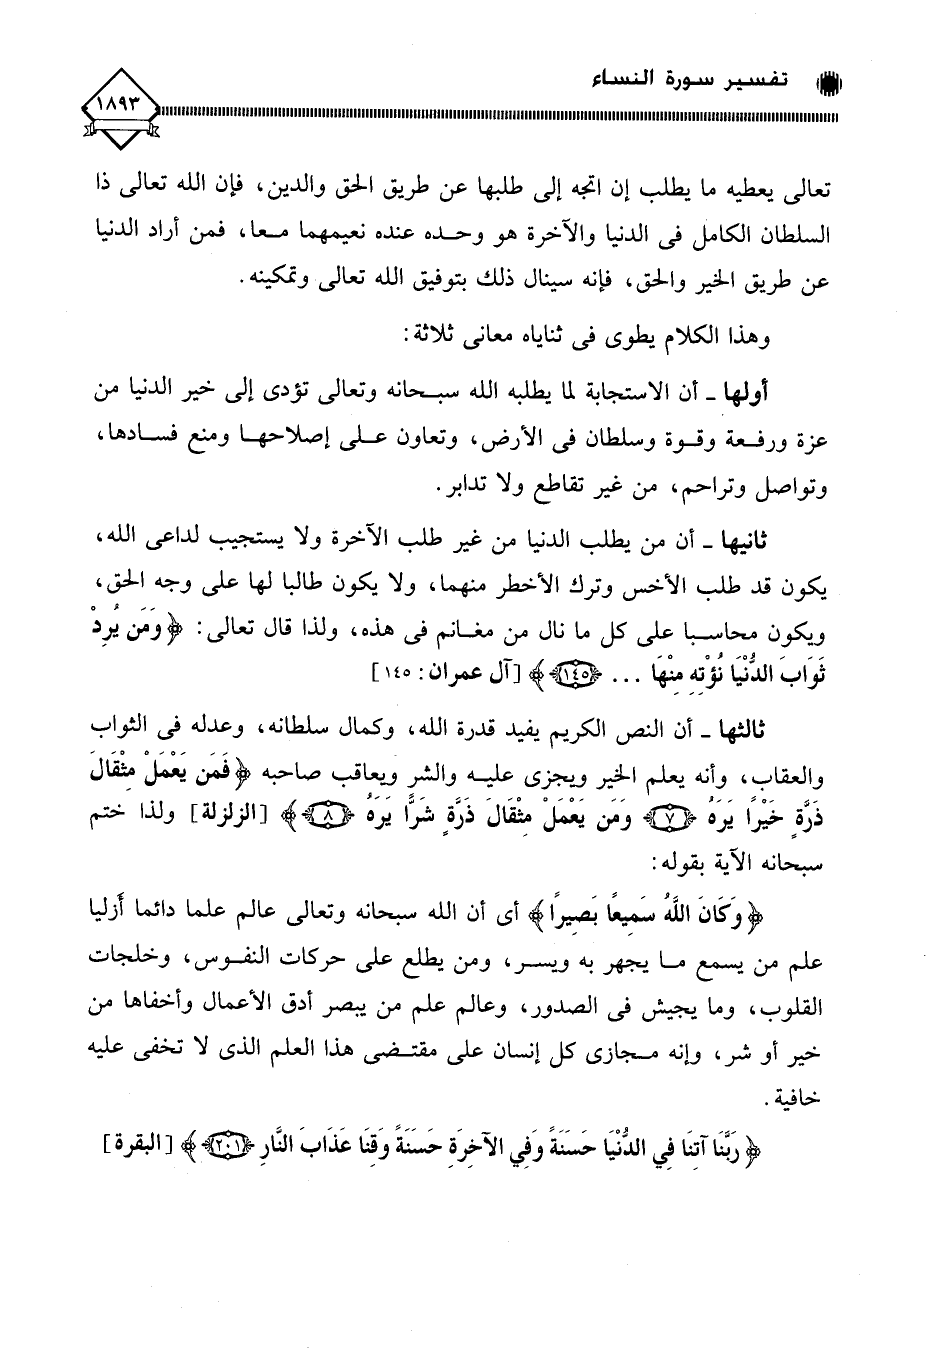 تفسير سورة النساء
١٨٩٣
تعالى يعطيه ما يطلب إن اتجه إلى طلبها عن طريق الحق والدين، فإن الله تعالى ذا
السلطان الكامل فى الدنيا والآخرة هو وحده عنده نعيمهما معا، فمن أراد الدنيا
عن طريق الخير والحق، فإنه سينال ذلك بتوفيق الله تعالى وتمكينه.
وهذا الكلام يطوى فى ثناياه معانى ثلاثة:
أولها ـ أن الاستجابة لما يطلبه الله سبحانه وتعالى تؤدى إلى خير الدنيا من
عزة ورفعة وقوة وسلطان فى الأرض، وتعاون على إصلاحها ومنع فسادها،
وتواصل وتراحم، من غير تقاطع ولا تدابر.
ثانيها ـ أن من يطلب الدنيا من غير طلب الآخرة ولا يستجيب لداعى الله،
يكون قد طلب الأخس وترك الأخطر منهما، ولا يكون طالبا لها على وجه الحق،
ويكون محاسبا على كل ما نال من مغانم فى هذه، ولذا قال تعالى: ﴿وَمَن يُرِدْ
ثَوَابَ الدُّنْيَا نُؤْتِهِ مِنْهَا ... ﴿١٤٥﴾﴾ [آل عمران: ١٤٥]
ثالثها ـ أن النص الكريم يفيد قدرة الله، وكمال سلطانه، وعدله فى الثواب
والعقاب، وأنه يعلم الخير ويجزى عليه والشر ويعاقب صاحبه ﴿فَمَن يَعْمَلْ مِثْقَالَ
ذَرَّةٍ خَيْرًا يَرَهُ ﴿٧﴾ وَمَن يَعْمَلْ مِثْقَالَ ذَرَّةٍ شَرًّا يَرَهُ ﴿٨﴾﴾ [الزلزلة] ولذا ختم
سبحانه الآية بقوله:
﴿وَكَانَ اللَّهُ سَمِيعًا بَصِيرًا﴾ أى أن الله سبحانه وتعالى عالم علما دائما أزليا
علم من يسمع ما يجهر به ويسر، ومن يطلع على حركات النفوس، وخلجات
القلوب، وما يجيش فى الصدور، وعالم علم من يبصر أدق الأعمال وأخفاها من
خير أو شر، وإنه مجازى كل إنسان على مقتضى هذا العلم الذى لا تخفى عليه
خافية.
﴿رَبَّنَا آتِنَا فِي الدُّنْيَا حَسَنَةً وَفِي الآخِرَةِ حَسَنَةً وَقِنَا عَذَابَ النَّارِ ﴿٢٠١﴾﴾ [البقرة]